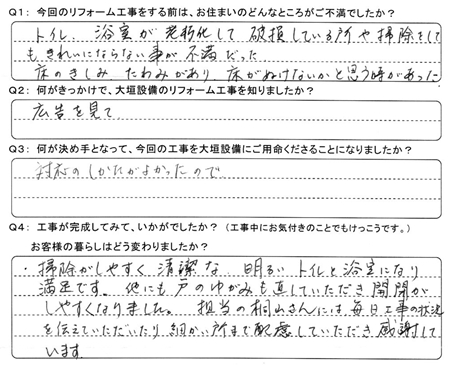 Q1: 今回のリフォーム工事をする前は、お住まいのどんなところがご不満でしたか?
トイレ、浴室が老朽化して破損している所や掃除をして
もきれいにならない事が不満だった
床のきしみ、たわみがあり、床がぬけないかと思う時があった
Q2: 何がきっかけで、大垣設備のリフォーム工事を知りましたか?
広告を見て
Q3: 何が決め手となって、今回の工事を大垣設備にご用命くださることになりましたか?
対応のしかたがよかったので
Q4: 工事が完成してみて、いかがでしたか?(工事中にお気付きのことでもけっこうです。)
お客様の暮らしはどう変わりましたか?
・掃除がしやすく清潔な 明るいトイレと浴室になり
満足です。他にも戸のゆがみも直していただき開閉が
しやすくなりました。担当の桐山さんには毎日工事の状況
を伝えていただいたり細かい所まで配慮していただき感謝して
います